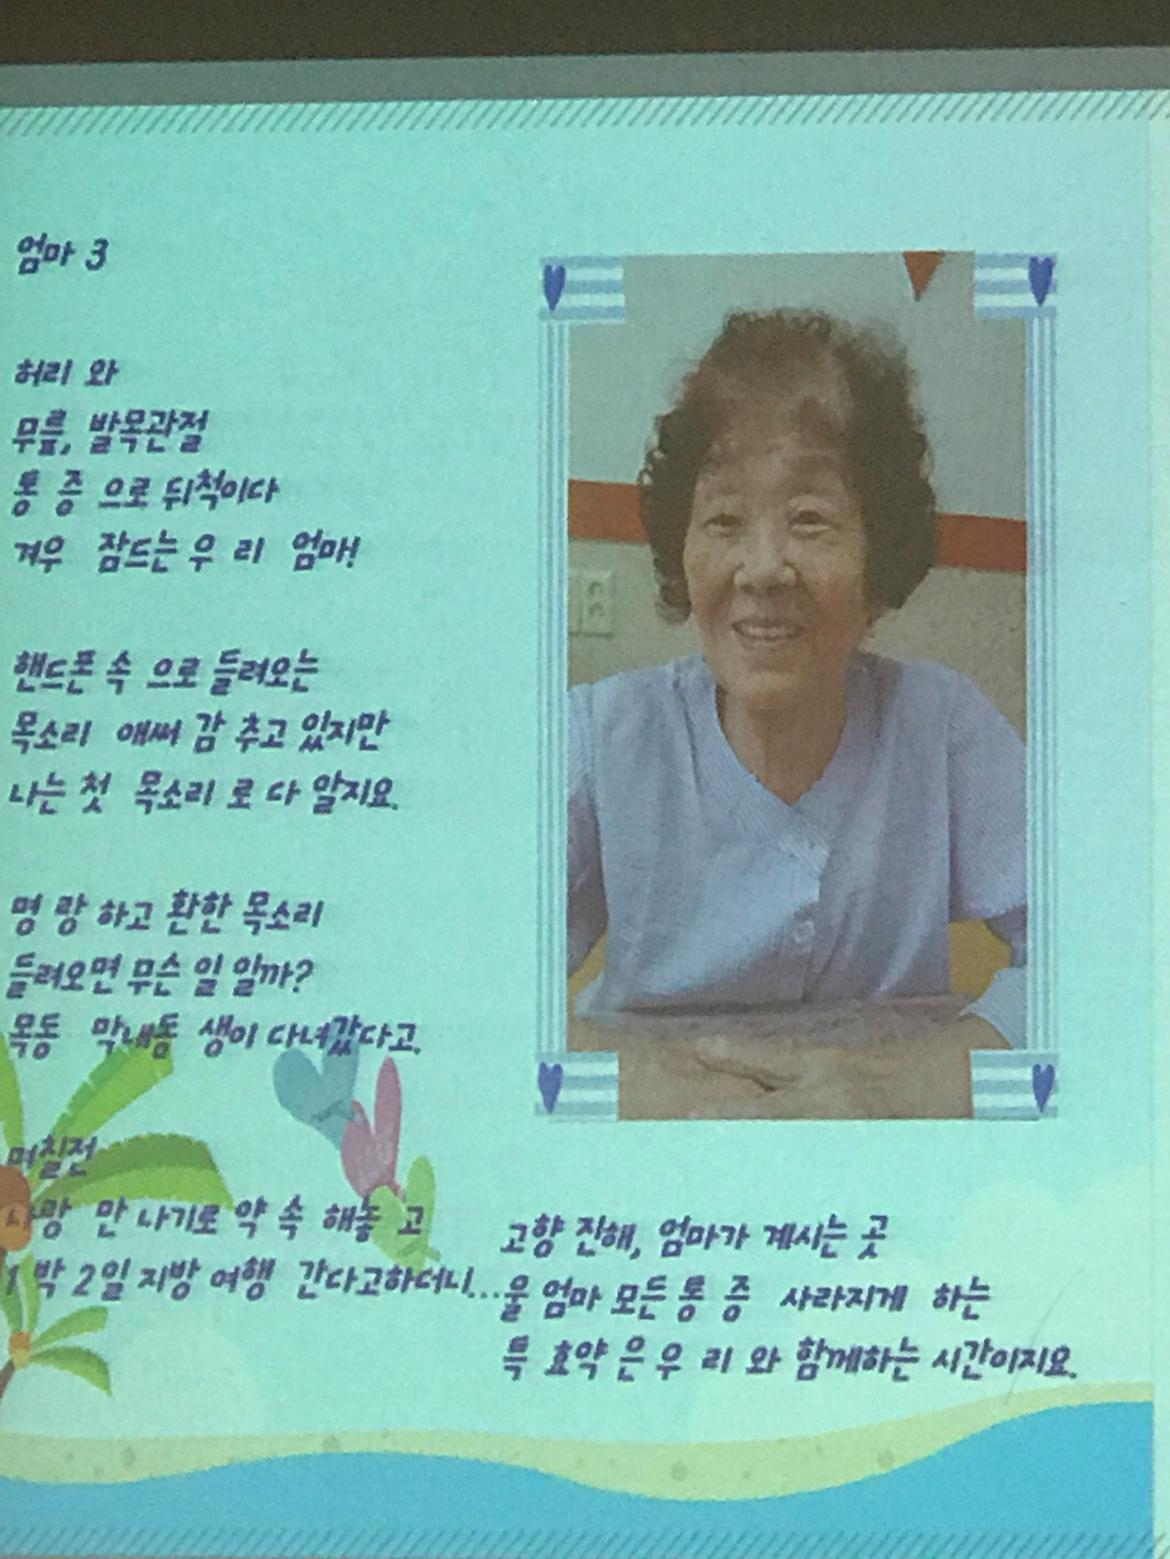 엄마 3
허리 와
무릎, 발목관절
통 증 으로 뒤척이다
겨우 잠드는 우 리 엄마!
핸드폰 속 으로 들려오는
목소리 애써 감 추고 있지만
나는 첫 목소리 로 다 알지요.
명 랑 하고 환한 목소리
들려오면 무슨 일 일까?
목동 막내동 생이 다녀갔다고.
며칠전
나랑 만 나기로 약 속 해놓 고
1 박 2일 지방 여행 간다고하더니...
고향 진해, 엄마가 계시는 곳
울 엄마 모든 통 증 사라지게 하는
특 효약 은 우 리 와 함께하는 시간이지요.